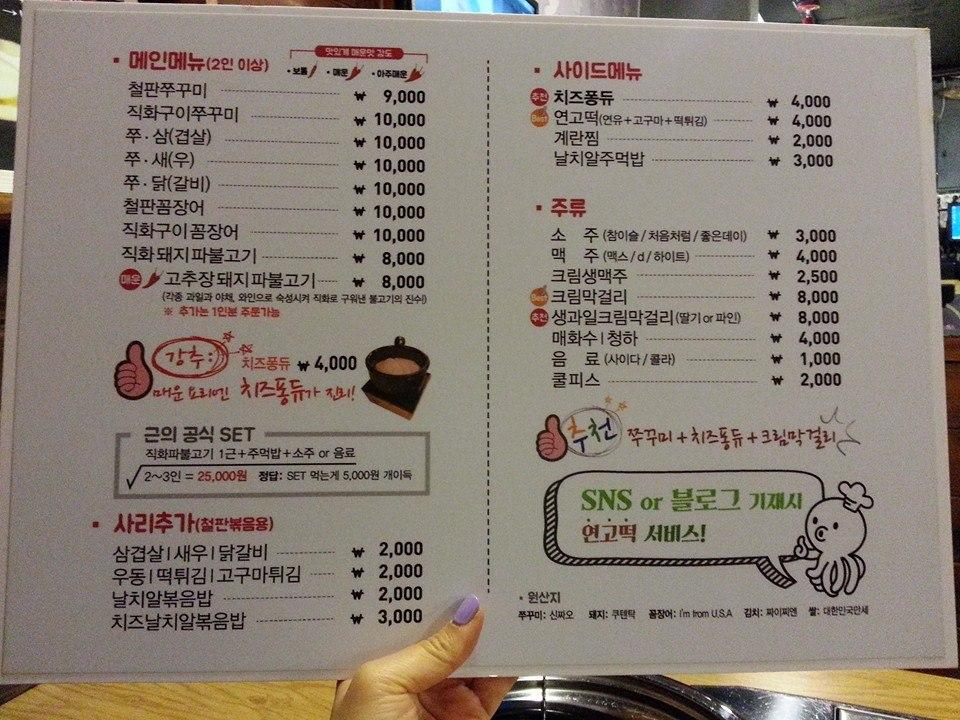 메인메뉴(2인 이상)
맛있게 매운맛 강도
· 보통 · 매운 · 아주매운
철판쭈꾸미 ₩ 9,000
직화구이쭈꾸미 ₩ 10,000
쭈·삼(겹살) ₩ 10,000
쭈·새(우) ₩ 10,000
쭈·닭(갈비) ₩ 10,000
철판꼼장어 ₩ 10,000
직화구이꼼장어 ₩ 10,000
직화돼지파불고기 ₩ 8,000
매운 고추장돼지파불고기 ₩ 8,000
(각종 과일과 야채, 와인으로 숙성시켜 직화로 구워낸 불고기의 진수!)
※ 추가는 1인분 주문가능
강추:) 치즈퐁듀 ₩ 4,000
매운 요리엔 치즈퐁듀가 진리!
근의 공식 SET
직화파불고기 1근+주먹밥+소주 or 음료
√ 2~3인 = 25,000원 정답: SET 먹는게 5,000원 개이득
사리추가(철판볶음용)
삼겹살 | 새우 | 닭갈비 ₩ 2,000
우동 | 떡튀김 | 고구마튀김 ₩ 2,000
날치알볶음밥 ₩ 2,000
치즈날치알볶음밥 ₩ 3,000
사이드메뉴
추천 치즈퐁듀 ₩ 4,000
Best 연고떡(연유+고구마+떡튀김) ₩ 4,000
계란찜 ₩ 2,000
날치알주먹밥 ₩ 3,000
주류
소 주 (참이슬 / 처음처럼 / 좋은데이) ₩ 3,000
맥 주 (맥스 / d / 하이트) ₩ 4,000
크림생맥주 ₩ 2,500
Best 크림막걸리 ₩ 8,000
추천 생과일크림막걸리(딸기 or 파인) ₩ 8,000
매화수 | 청하 ₩ 4,000
음 료 (사이다 / 콜라) ₩ 1,000
쿨피스 ₩ 2,000
추천 쭈꾸미+치즈퐁듀+크림막걸리
SNS or 블로그 기재시
연고떡 서비스!
* 원산지
쭈꾸미: 신짜오 돼지: 쿠텐탁 꼼장어: i'm from U.S.A 김치: 짜이찌엔 쌀: 대한민국만세